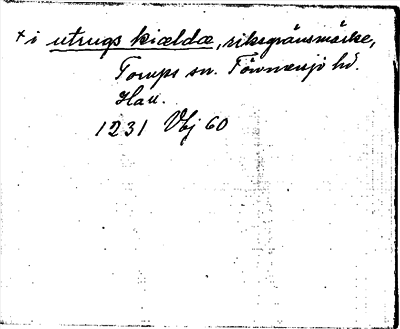 + i utrugs kiældæ, riksgränsmärke,
Torups sn. Tönnersjö hd.
Hall.
1231 VGj 60